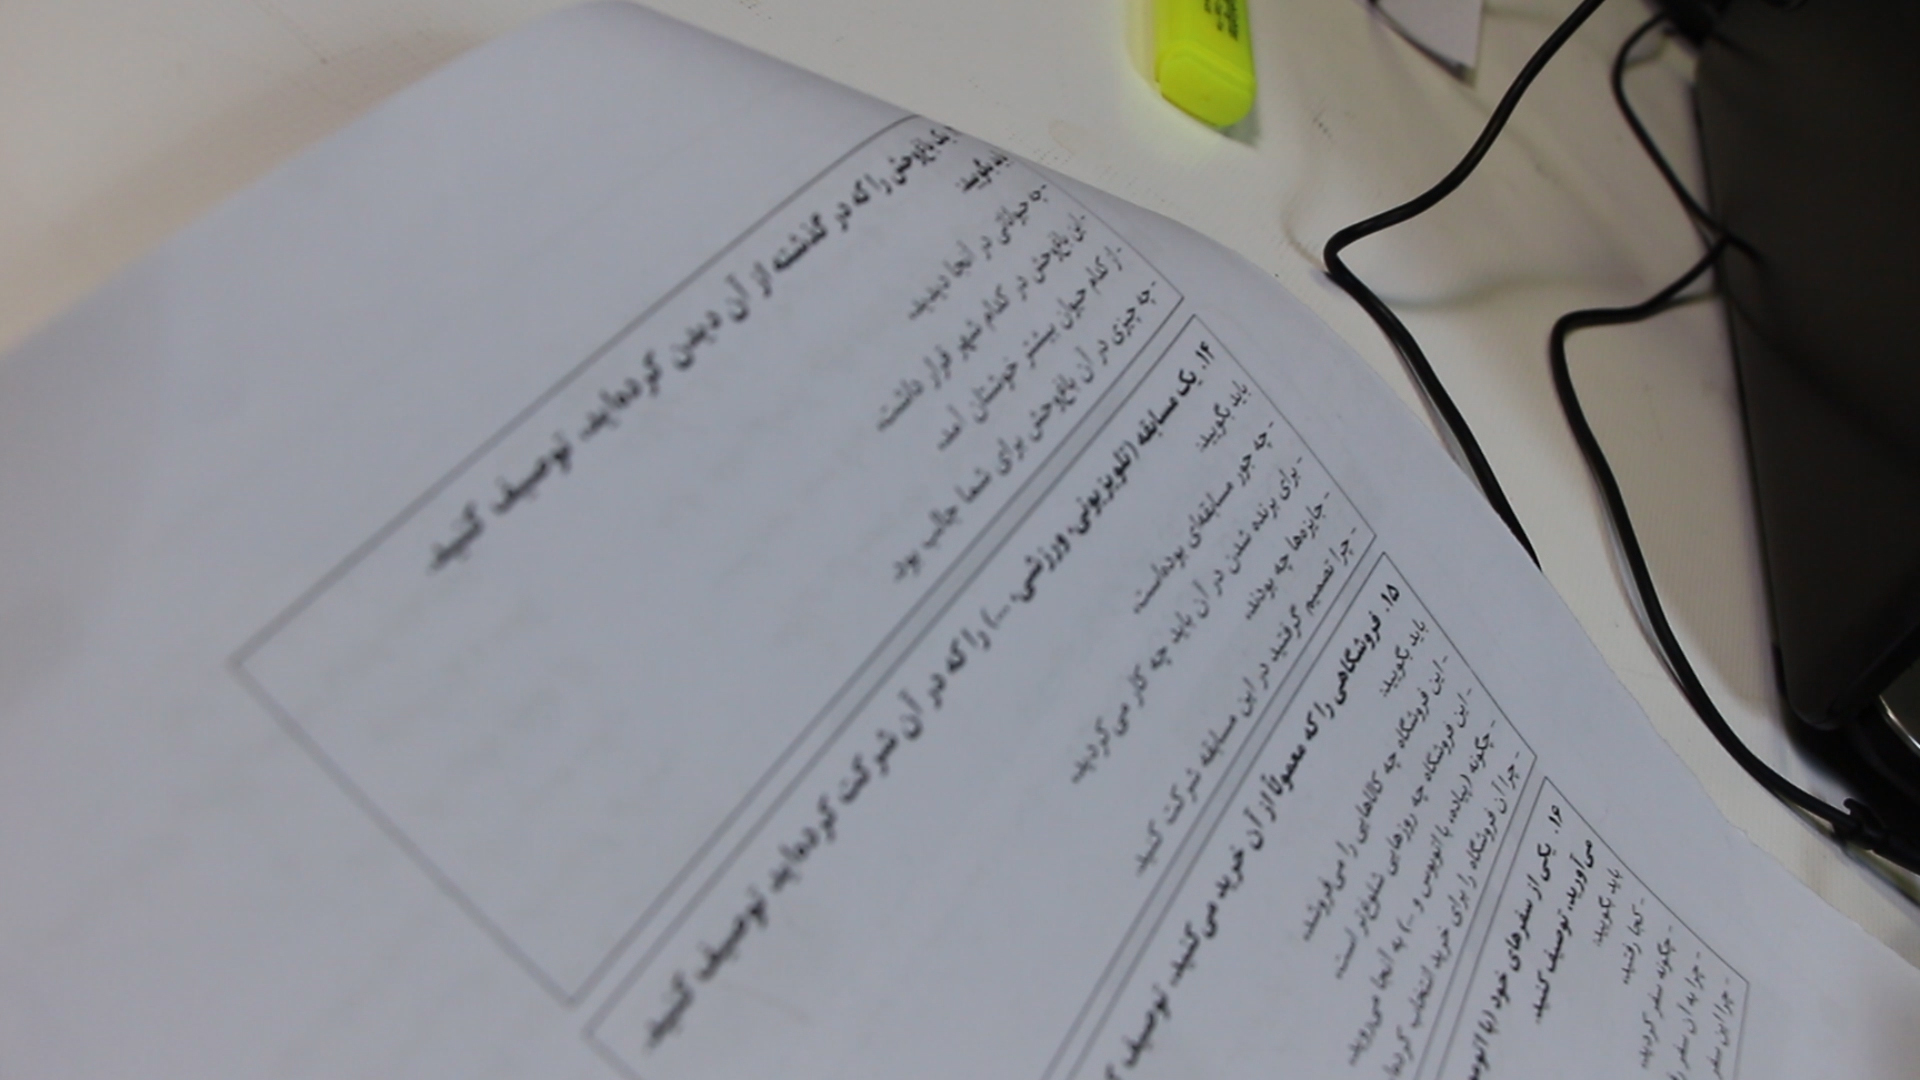 یک باغ‌وحش را که در گذشته از آن دیدن کرده‌اید، توصیف کنید.
باید بگویید:
-چه حیواناتی در آنجا دیدید.
-این باغ‌وحش در کدام شهر قرار داشت.
-از کدام حیوان بیشتر خوشتان آمد.
-چه چیزی در آن باغ‌وحش برای شما جالب بود.
۱۴. یک مسابقه (تلویزیونی، ورزشی، ...) را که در آن شرکت کرده‌اید، توصیف کنید.
باید بگویید:
-چه جور مسابقه‌ای بوده‌است.
-برای برنده شدن در آن باید چه کار می‌کردید.
-جایزه‌ها چه بودند.
-چرا تصمیم گرفتید در این مسابقه شرکت کنید.
۱۵. فروشگاهی را که معمولاً از آن خرید می‌کنید، توصیف
باید بگویید:
-این فروشگاه چه کالاهایی را می‌فروشد.
-این فروشگاه چه روزهایی شلوغ‌تر است.
-چگونه (پیاده، با اتوبوس و ...) به آنجا می‌روید.
-چرا آن فروشگاه را برای خرید انتخاب کرده
۱۶. یکی از سفرهای خود (با
می‌آورید، توصیف کنید.
باید بگویید:
-کجا رفتید.
-چگونه سفر کردید.
-چرا به آن سفر
-چرا این سفر